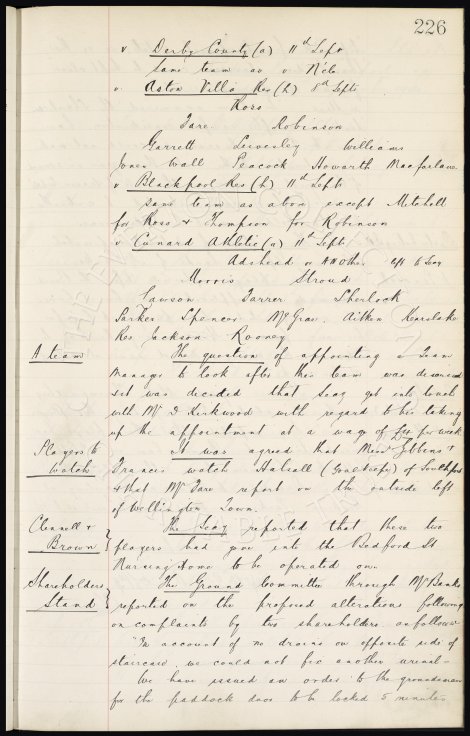 226
v Derby County (a) 11th Sept
Same team as v N'cle
v. Aston Villa Res (h) 8th Sept
Ross
Tare. Robinson
Garrett Leivesley Williams
Jones Wall Peacock Howarth Macfarlane
v Blackpool Res (h) 11th Sept
same team as above except Mitchell
for Ross & Thompson for Robinson
v Cunard Athletic (a) 11th Sept.
Adshead or A N Other left to Secy
Morris Stroud
Lawson Farrer Sherlock
Parker Spencer McGrae. Aitken Kearslake
Res Jackson Rooney
A team The question of appointing a Team
Manager to look after this team was discussed
& it was decided that Secy get into touch
with Mr D Kirkwood with regard to his taking
up the appointment at a wage of £4 per week
Players to watch It was agreed that Messrs Gibbins &
Francis watch Halsall (Goalkeeper) of Southport
& that Mr Tare report on the outside left
of Wellington Town.
Clennell & Brown The Secy reported that these two
players had gone into the Bedford St
Nursing Home to be operated on.
Shareholders Stand The Ground Committee through Mr Banks
reported on the proposed alterations following
on complaints by two shareholders as follows:-
"On account of no drains on opposite side of
staircase, we could not fix another urinal-
We have issued an order to the groundsman
for the paddock door to be locked 5 minutes